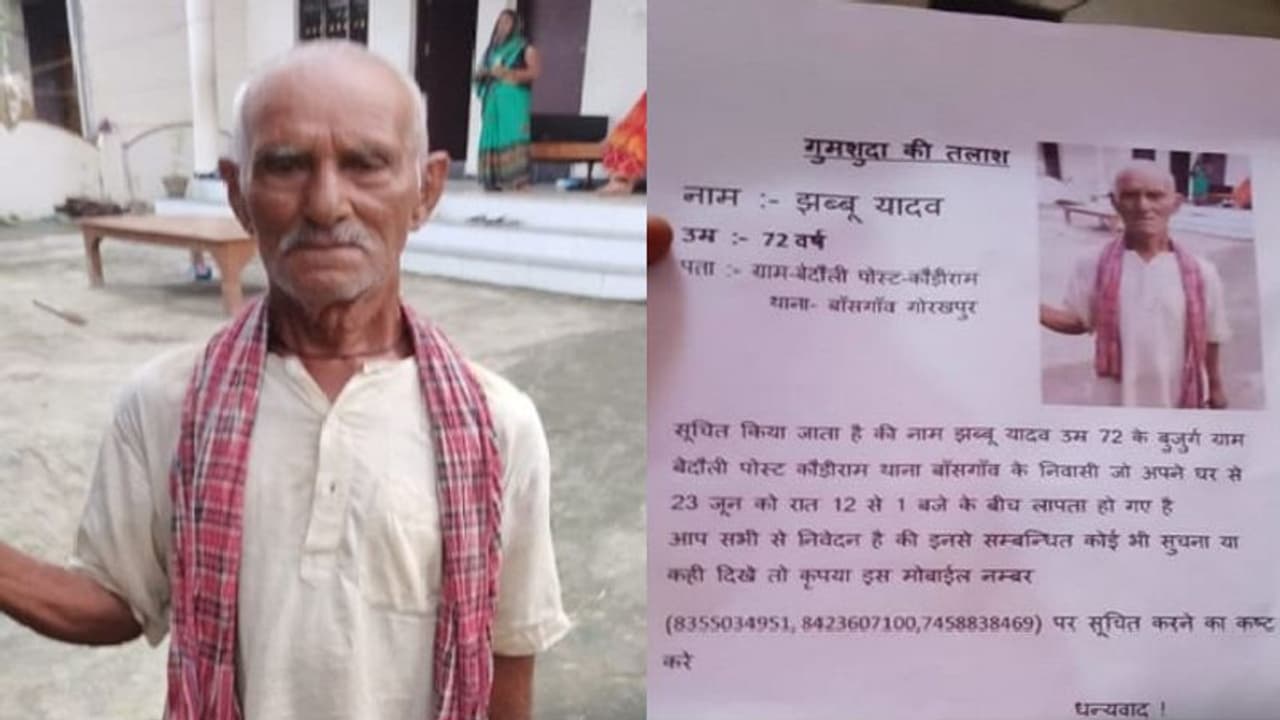 गुमशुदा की तलाश
नाम :- झब्बू यादव
उम्र :- 72 वर्ष
पता :- ग्राम-बेदौली पोस्ट-कौड़ीराम
थाना- बाँसगाँव गोरखपुर
सूचित किया जाता है की नाम झब्बू यादव उम्र 72 के बुजुर्ग ग्राम
बेदौली पोस्ट कौड़ीराम थाना बाँसगाँव के निवासी जो अपने घर से
23 जून को रात 12 से 1 बजे के बीच लापता हो गए है
आप सभी से निवेदन है की इनसे सम्बन्धित कोई भी सुचना या
कही दिखे तो कृपया इस मोबाईल नम्बर
(8355034951, 8423607100,7458838469) पर सूचित करने का कष्ट
करे
धन्यवाद !